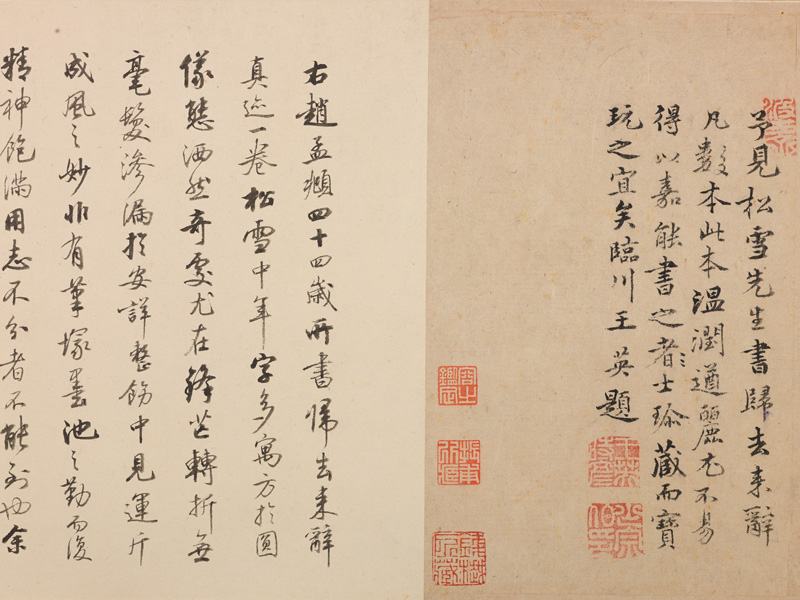 予見松雪先生書歸去来辭
凡數本此本溫潤遒麗尤不易
得以嘉能書之者士瑜藏而寶
玩之宜矣臨川王英題
右趙孟頫四十四歲所書歸去来辭
真迹一卷松雪中年字多寓方於圓
儀態洒然奇處尤在鋒芒轉折無
毫髮滲漏於安詳整飭中見運斤
成風之妙非有筆塚墨池之勤而復
精神飽滿用志不分者不能到也余